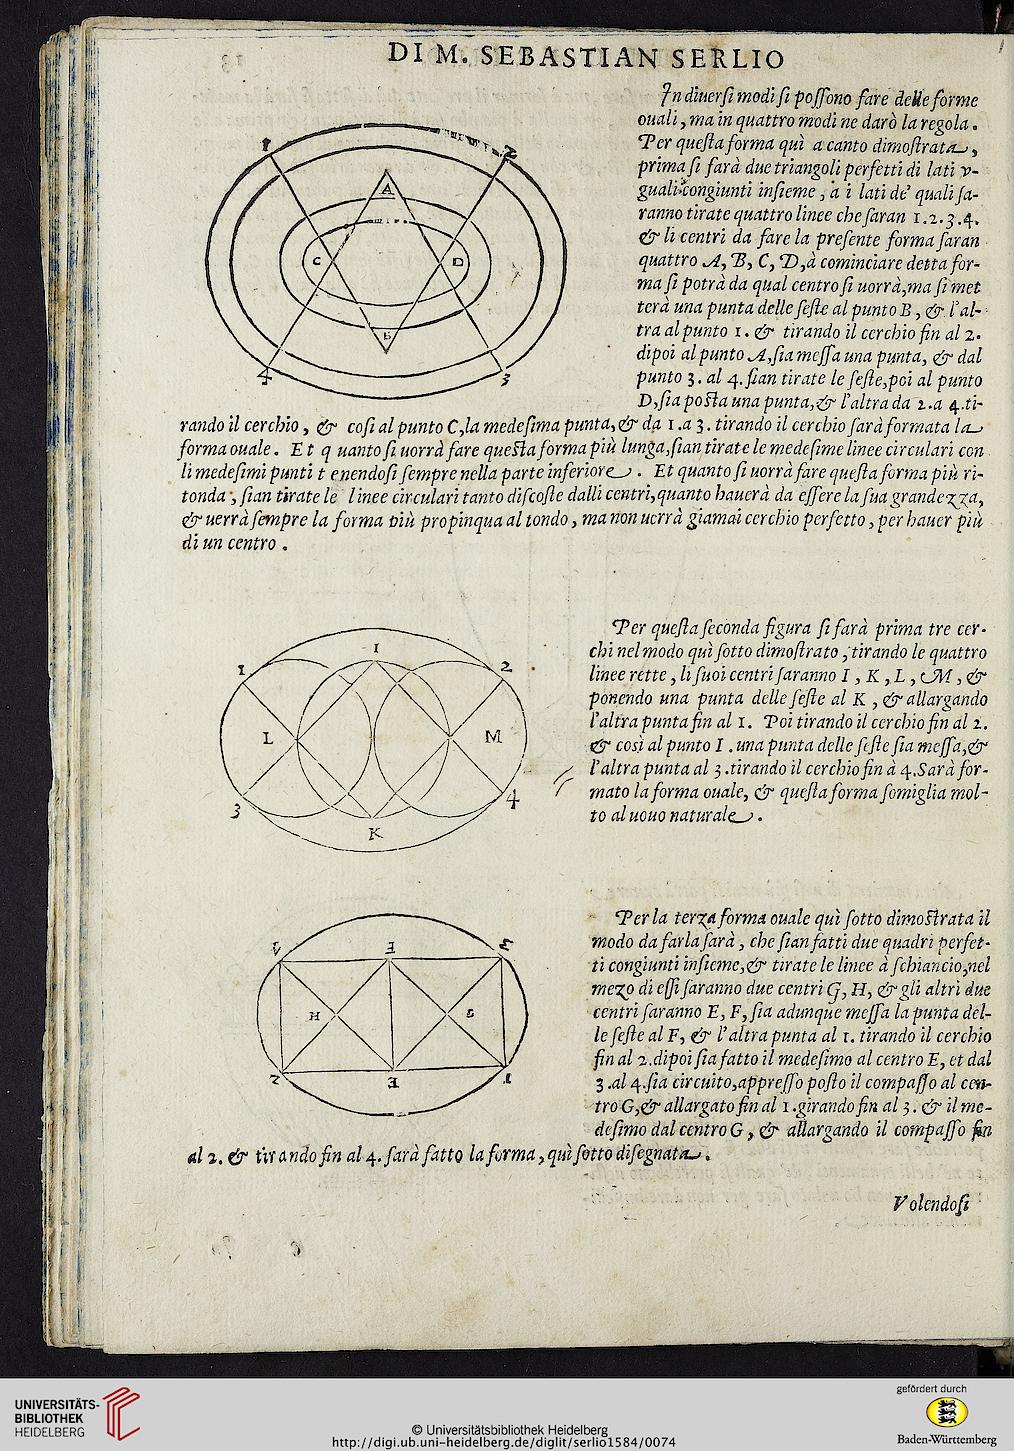 DI M. SEBASTIAN SERLIO
In diuerſi modi ſi poſſono fare delle forme
ouali, ma in quattro modi ne darò la regola.
Per queſta forma quì a canto dimoſtrata,
prima ſi farà due triangoli perfetti di lati v-
guali congiunti inſieme, a i lati de' quali ſa-
ranno tirate quattro linee che ſaran 1.2.3.4.
& li centri da fare la preſente forma ſaran
quattro A, B, C, D, à cominciare detta for-
ma ſi potrà da qual centro ſi uorrà, ma ſi met
terà una punta delle ſeſte al punto B, & l'al-
tra al punto 1. & tirando il cerchio fin al 2.
dipoi al punto A, ſia meſſa una punta, & dal
punto 3. al 4. ſian tirate le ſeſte, poi al punto
D, ſia poſta una punta, & l'altra da 2. a 4. ti-
rando il cerchio, & coſi al punto C, la medeſima punta, & da 1. a 3. tirando il cerchio ſarà formata la
forma ouale. Et q uanto ſi uorrà fare queſta forma più lunga, ſian tirate le medeſime linee circulari con
li medeſimi punti t enendoſi ſempre nella parte inferiore. Et quanto ſi uorrà fare queſta forma più ri-
tonda, ſian tirate le linee circulari tanto diſcoſte dalli centri, quanto hauerà da eſſere la ſua grandezza,
& uerrà ſempre la forma più propinqua al tondo, ma non uerrà giamai cerchio perfetto, per hauer più
di un centro.
1
2
A
C
D
B
4
3
Per queſta ſeconda figura ſi farà prima tre cer-
chi nel modo quì ſotto dimoſtrato, tirando le quattro
linee rette, li ſuoi centri ſaranno I, K, L, M, &
ponendo una punta delle ſeſte al K, & allargando
l'altra punta fin al 1. Poi tirando il cerchio fin al 2.
& così al punto I. una punta delle ſeſte ſia meſſa, &
l'altra punta al 3. tirando il cerchio fin à 4. Sarà for-
mato la forma ouale, & queſta forma ſomiglia mol-
to al uouo naturale.
I
1
2
L
M
3
4
K
Per la terza forma ouale quì ſotto dimoſtrata il
modo da farla ſarà, che ſian fatti due quadri perfet-
ti congiunti inſieme, & tirate le linee à ſchiancio, nel
mezo di eſſi ſaranno due centri G, H, & gli altri due
centri ſaranno E, F, ſia adunque meſſa la punta del-
le ſeſte al F, & l'altra punta al 1. tirando il cerchio
fin al 2. dipoi ſia fatto il medeſimo al centro E, et dal
3. al 4. ſia circuito, appreſſo poſto il compaſſo al cen-
tro G, & allargato fin al 1. girando fin al 3. & il me-
deſimo dal centro G, & allargando il compaſſo fin
al 2. & tirando fin al 4. ſarà fatto la forma, quì ſotto diſegnata.
4
3
H
G
2
1
Volendoſi
UNIVERSITÄTS-
BIBLIOTHEK
HEIDELBERG
© Universitätsbibliothek Heidelberg
http://digi.ub.uni-heidelberg.de/diglit/serlio1584/0074
gefördert durch
Baden-Württemberg